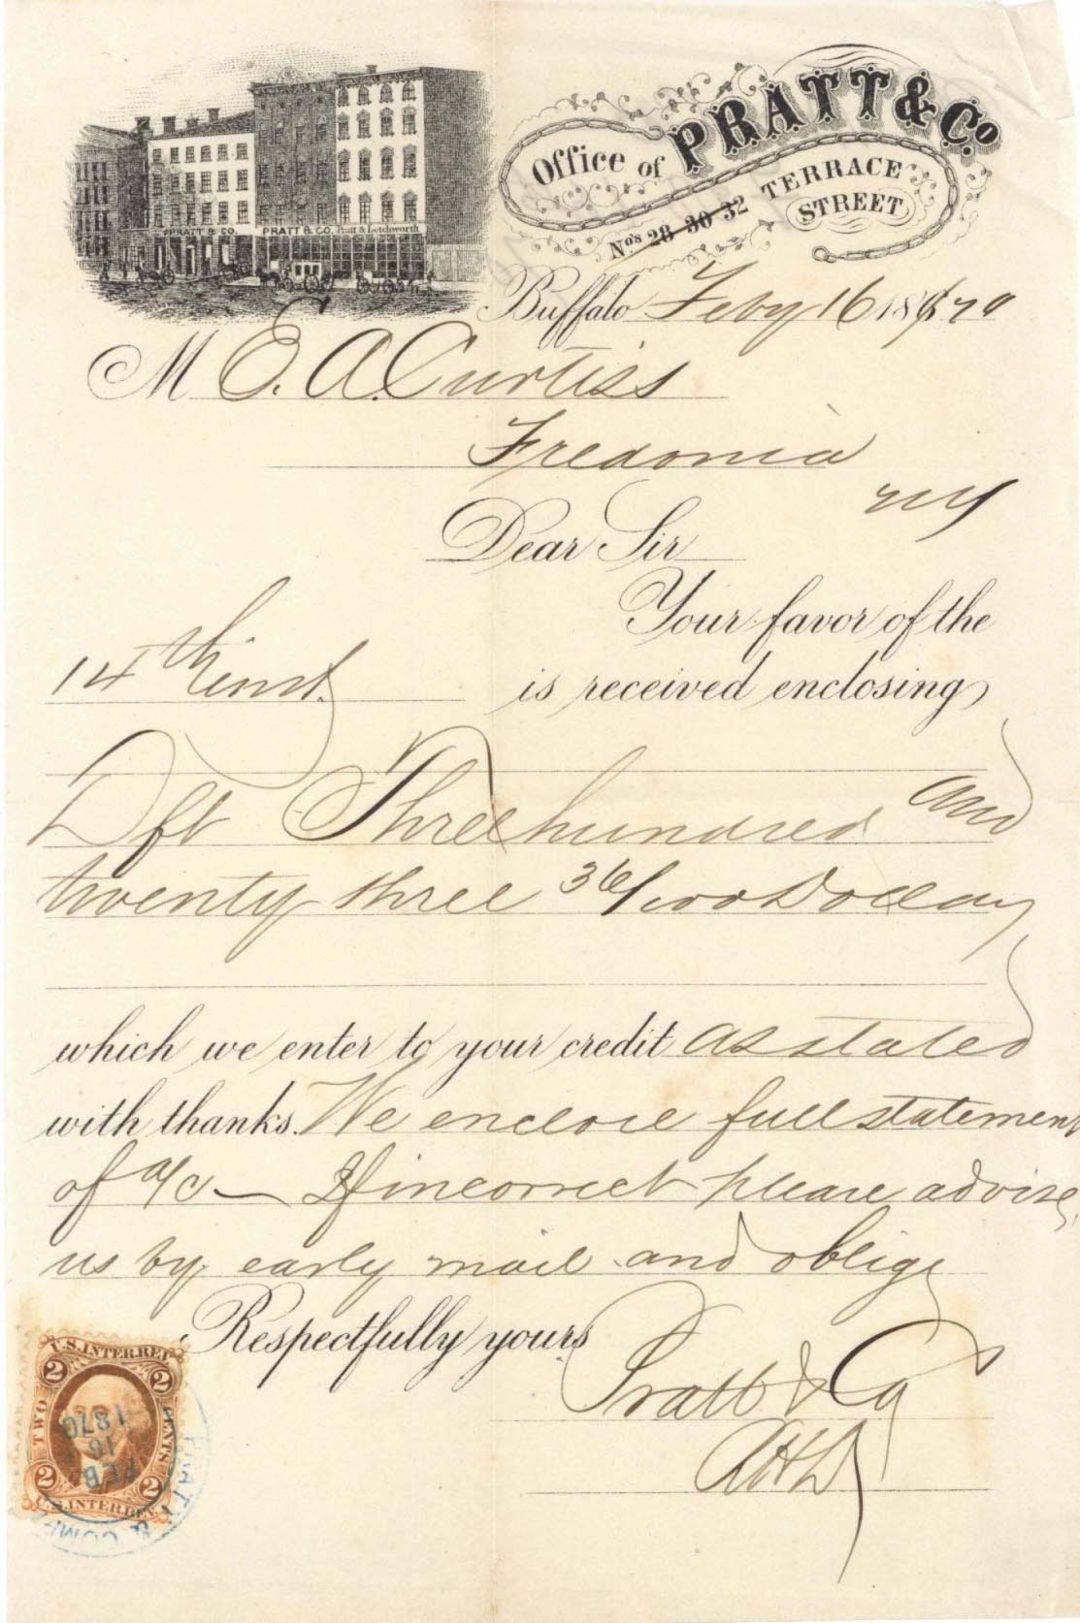 PRATT & CO. PRATT & CO. Pratt & Letchworth
Office of PRATT & Co.
Nos 28 30 32 TERRACE
STREET
Buffalo Feby 16 1870
M E. A. Curtiss
Fredonia
NY
Dear Sir
Your favor of the
14th inst. is received enclosing
Dft Three hundred and
twenty three 36/100 Dollars
which we enter to your credit as stated
with thanks. We enclose full statement
of a/c — If incorrect please advise
us by early mail and oblige
Respectfully yours
Pratt & Co
U.S. INTER. REV.
2 2
TWO CENTS
FEB
16
1870
2 2
U.S. INTER. REV.
PRATT & COMP